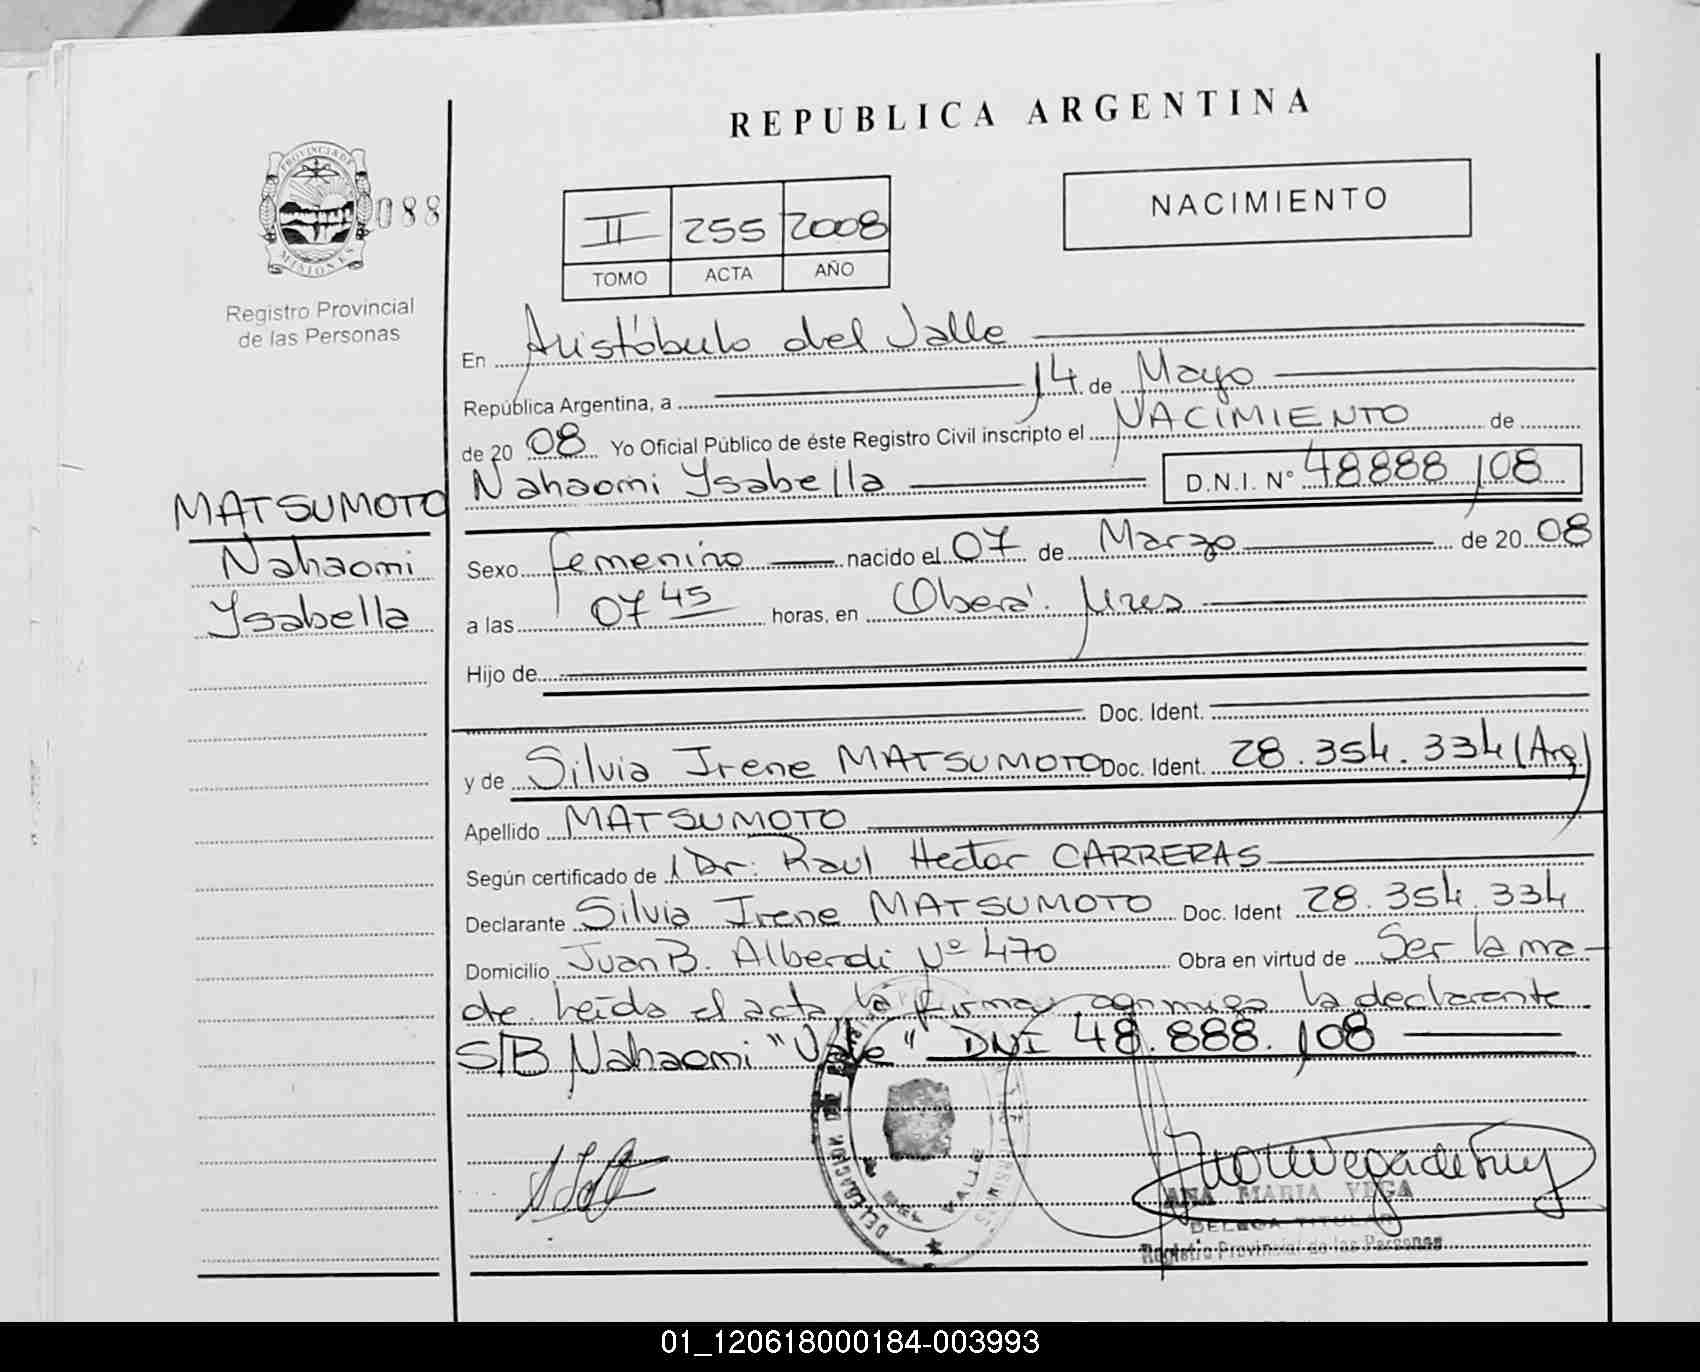 REPUBLICA ARGENTINA
NACIMIENTO
PROVINCIA DE
MISIONES
088
Registro Provincial
de las Personas
II 255 2008
TOMO ACTA AÑO
En Aristóbulo del Valle
República Argentina, a 14 de Mayo
de 20 08 Yo Oficial Público de éste Registro Civil inscripto el NACIMIENTO de
Nahaomi Ysabella D.N.I. Nº 48888108
MATSUMOTO
Nahaomi
Ysabella
Sexo femenino nacido el 07 de Marzo de 20 08
a las 07 45 horas, en Oberá. Mnes
Hijo de
Doc. Ident.
y de Silvia Irene MATSUMOTO Doc. Ident. 28.354.334 (Arg)
Apellido MATSUMOTO
Según certificado de Dr: Raul Hector CARRERAS
Declarante Silvia Irene MATSUMOTO Doc. Ident 28.354.334
Domicilio Juan B. Alberdi Nº 470 Obra en virtud de Ser la ma-
dre. Leída el acta la firma conmigo la declarante
S/B Nahaomi "Vale" DNI 48.888.108
DELEGACION DEL VALLE MISIONES
ANA MARIA VEGA
DELEGA TITULAR
Registro Provincial de las Personas
01_120618000184-003993